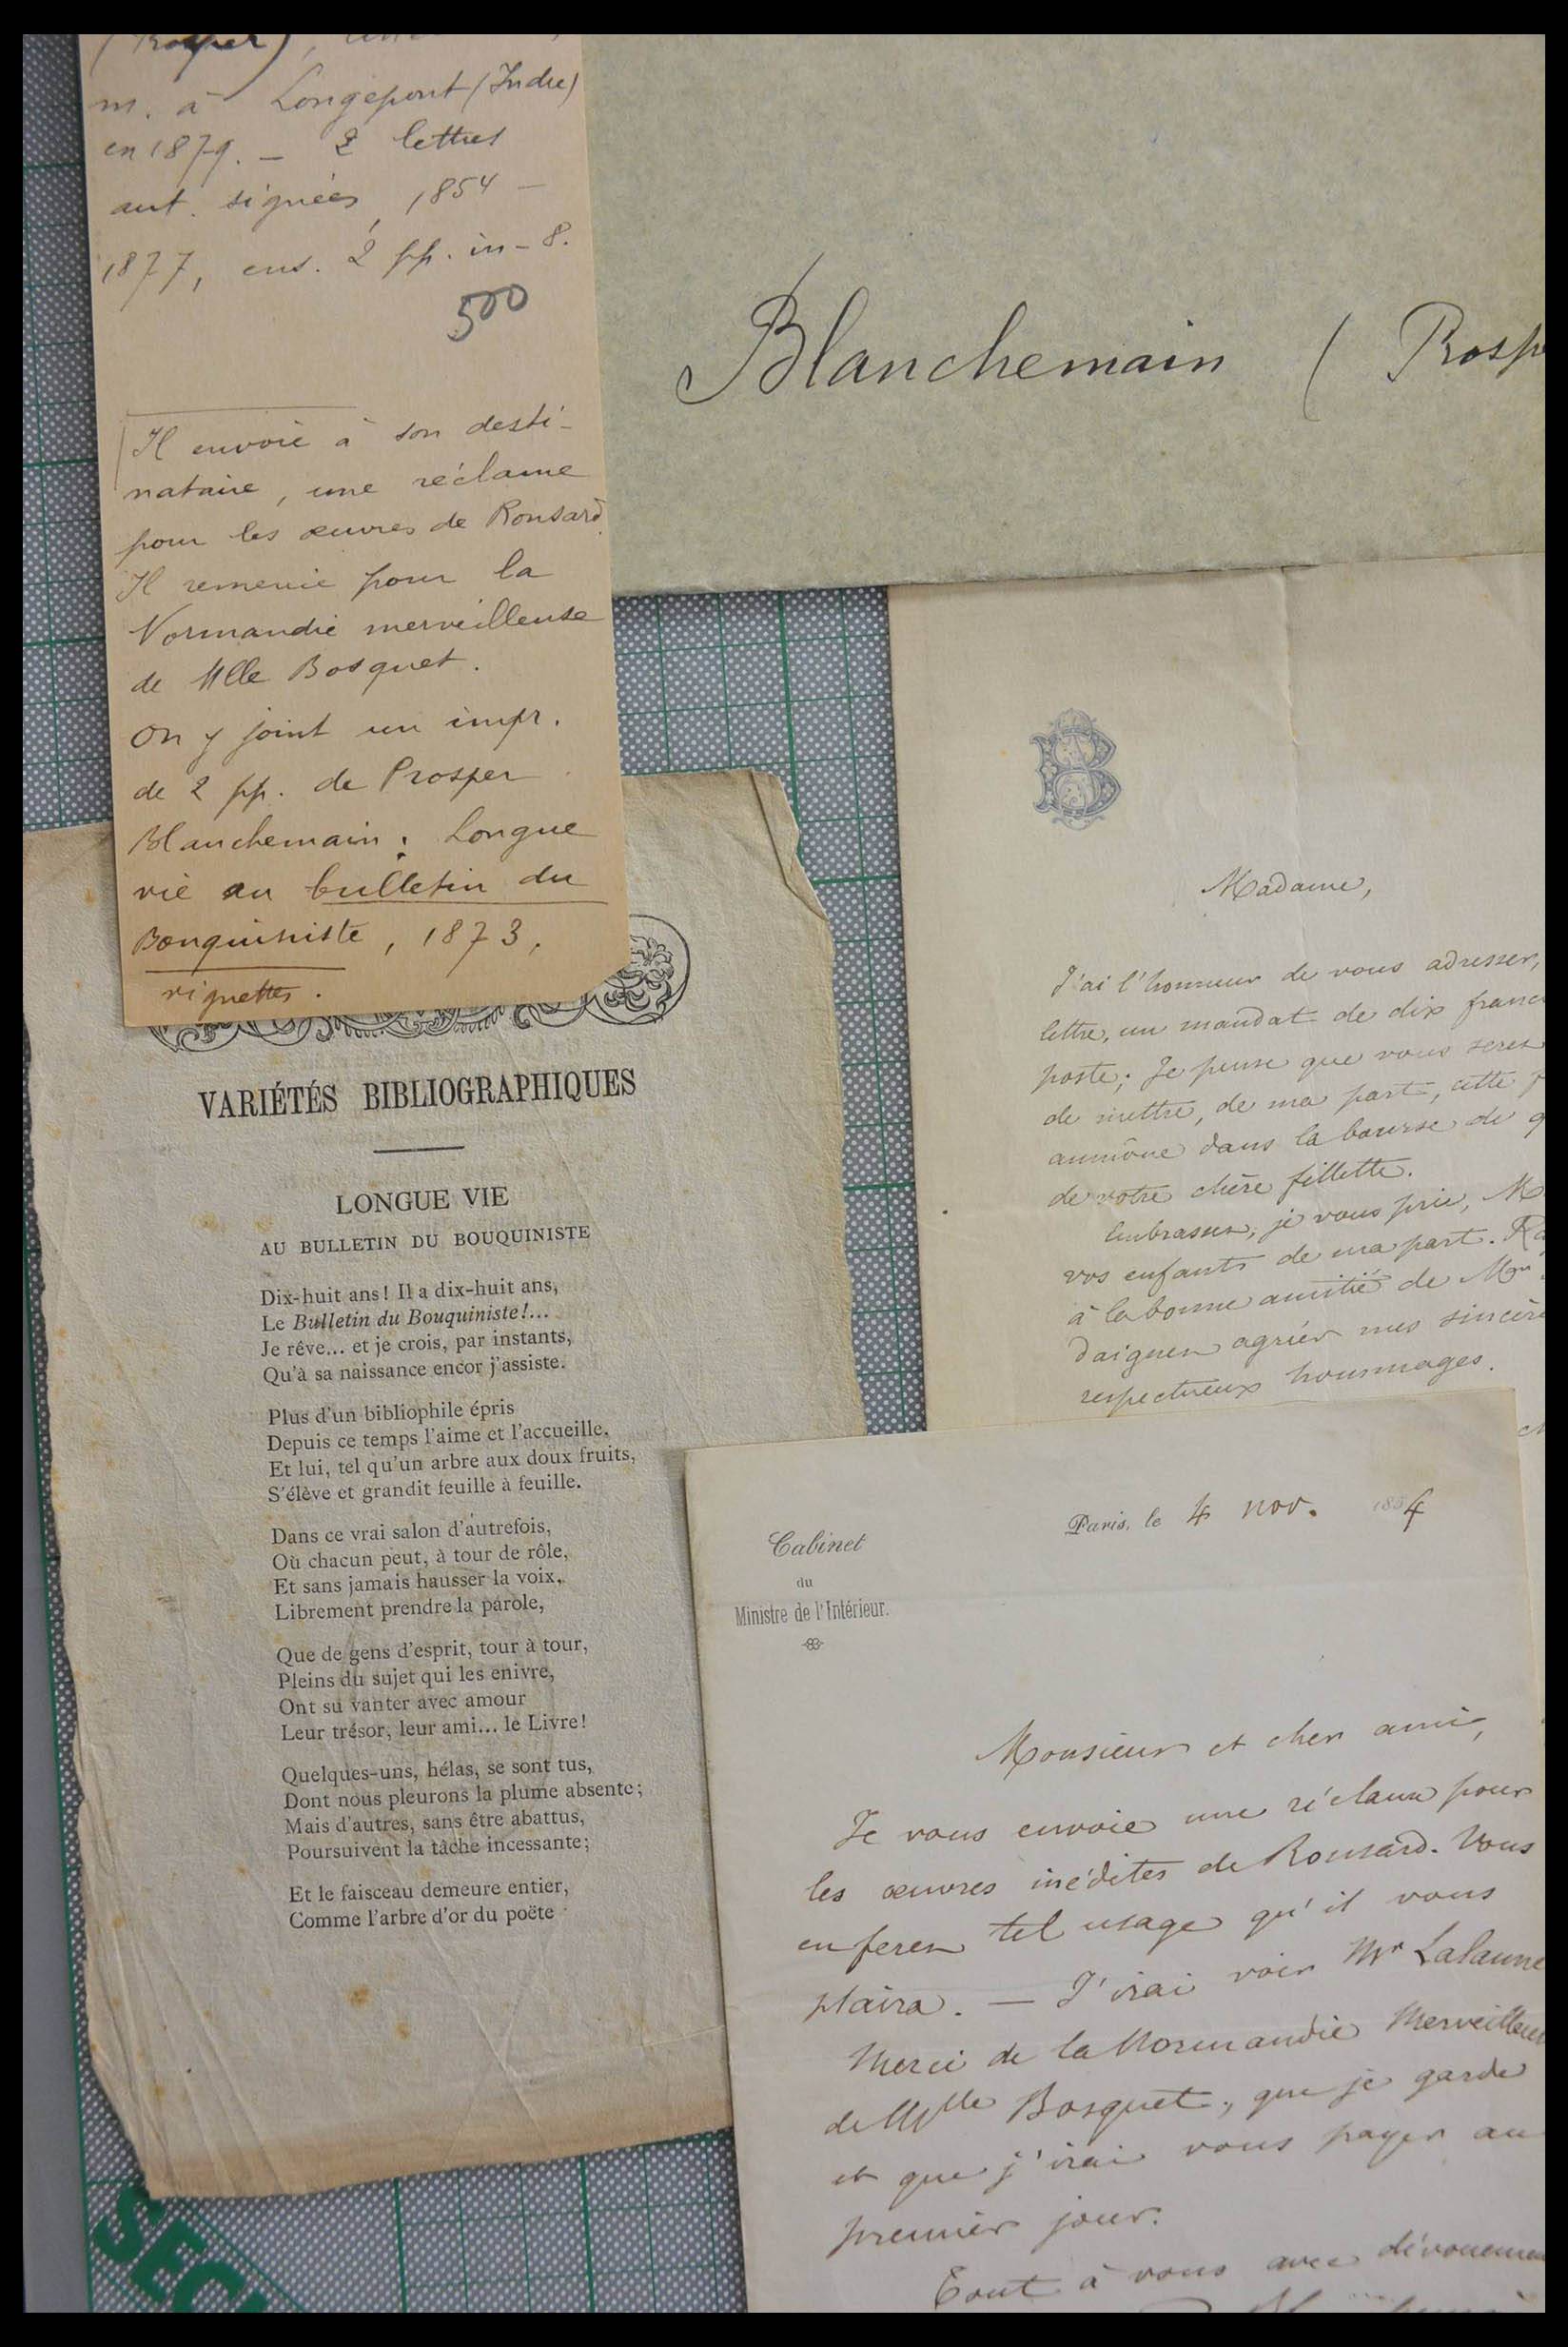 (Prosper),
m. à Longepont (Indre)
en 1879. — 2 lettres
aut. signées, 1854 —
1877, ens. 2 pp. in-8.
500
Il envoie à son desti-
nataire, une réclame
pour les œuvres de Ronsard
Il remercie pour la
Normandie merveilleuse
de Mlle Bosquet.
On y joint un impr.
de 2 pp. de Prosper
Blanchemain : Longue
vie au bulletin du
Bouquiniste, 1873,
vignettes.
Blanchemain (Prosp
B
Madame,
J'ai l'honneur de vous adresser,
lettre, un mandat de dix franc
poste; Je pense que vous serez
de mettre, de ma part, cette
aumône dans la bourse de q
de votre chère fillette.
Embrassez, je vous prie, M
vos enfants de ma part. Ra
à la bonne amitié de Mme
daignez agréer mes sincère
respectueux hommages.
VARIÉTÉS BIBLIOGRAPHIQUES
LONGUE VIE
AU BULLETIN DU BOUQUINISTE
Dix-huit ans! Il a dix-huit ans,
Le Bulletin du Bouquiniste!...
Je rêve... et je crois, par instants,
Qu'à sa naissance encor j'assiste.
Plus d'un bibliophile épris
Depuis ce temps l'aime et l'accueille.
Et lui, tel qu'un arbre aux doux fruits,
S'élève et grandit feuille à feuille.
Dans ce vrai salon d'autrefois,
Où chacun peut, à tour de rôle,
Et sans jamais hausser la voix,
Librement prendre la parole,
Que de gens d'esprit, tour à tour,
Pleins du sujet qui les enivre,
Ont su vanter avec amour
Leur trésor, leur ami... le Livre!
Quelques-uns, hélas, se sont tus,
Dont nous pleurons la plume absente;
Mais d'autres, sans être abattus,
Poursuivent la tâche incessante;
Et le faisceau demeure entier,
Comme l'arbre d'or du poëte
Cabinet
du
Ministre de l'Intérieur.
Paris, le 4 nov. 1854
Monsieur et cher ami,
Je vous envoie une réclame pour
les œuvres inédites de Ronsard. Vous
en ferez tel usage qu'il vous
plaira. — J'irai voir Mr Lalanne
Merci de la Normandie Merveilleuse
de Mlle Bosquet, que je garde
et que j'irai vous payer au
premier jour.
Tout à vous avec dévouemen
SEC